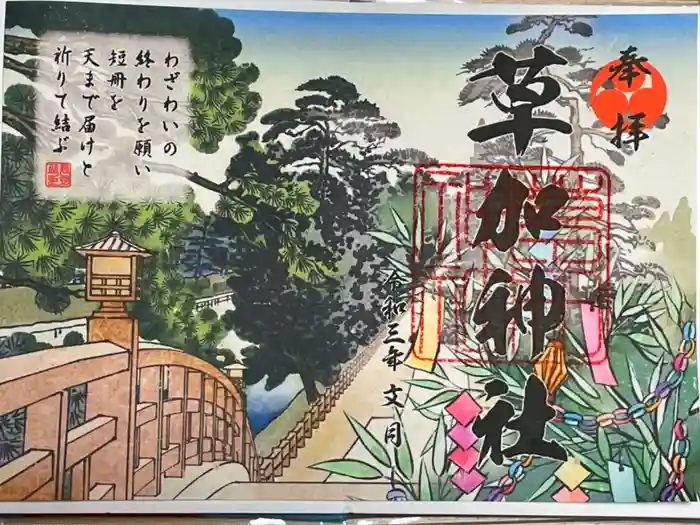 奉拝
草加神社
令和三年文月
わざわいの
終わりを願い
短冊を
天まで届けと
祈りて結ぶ